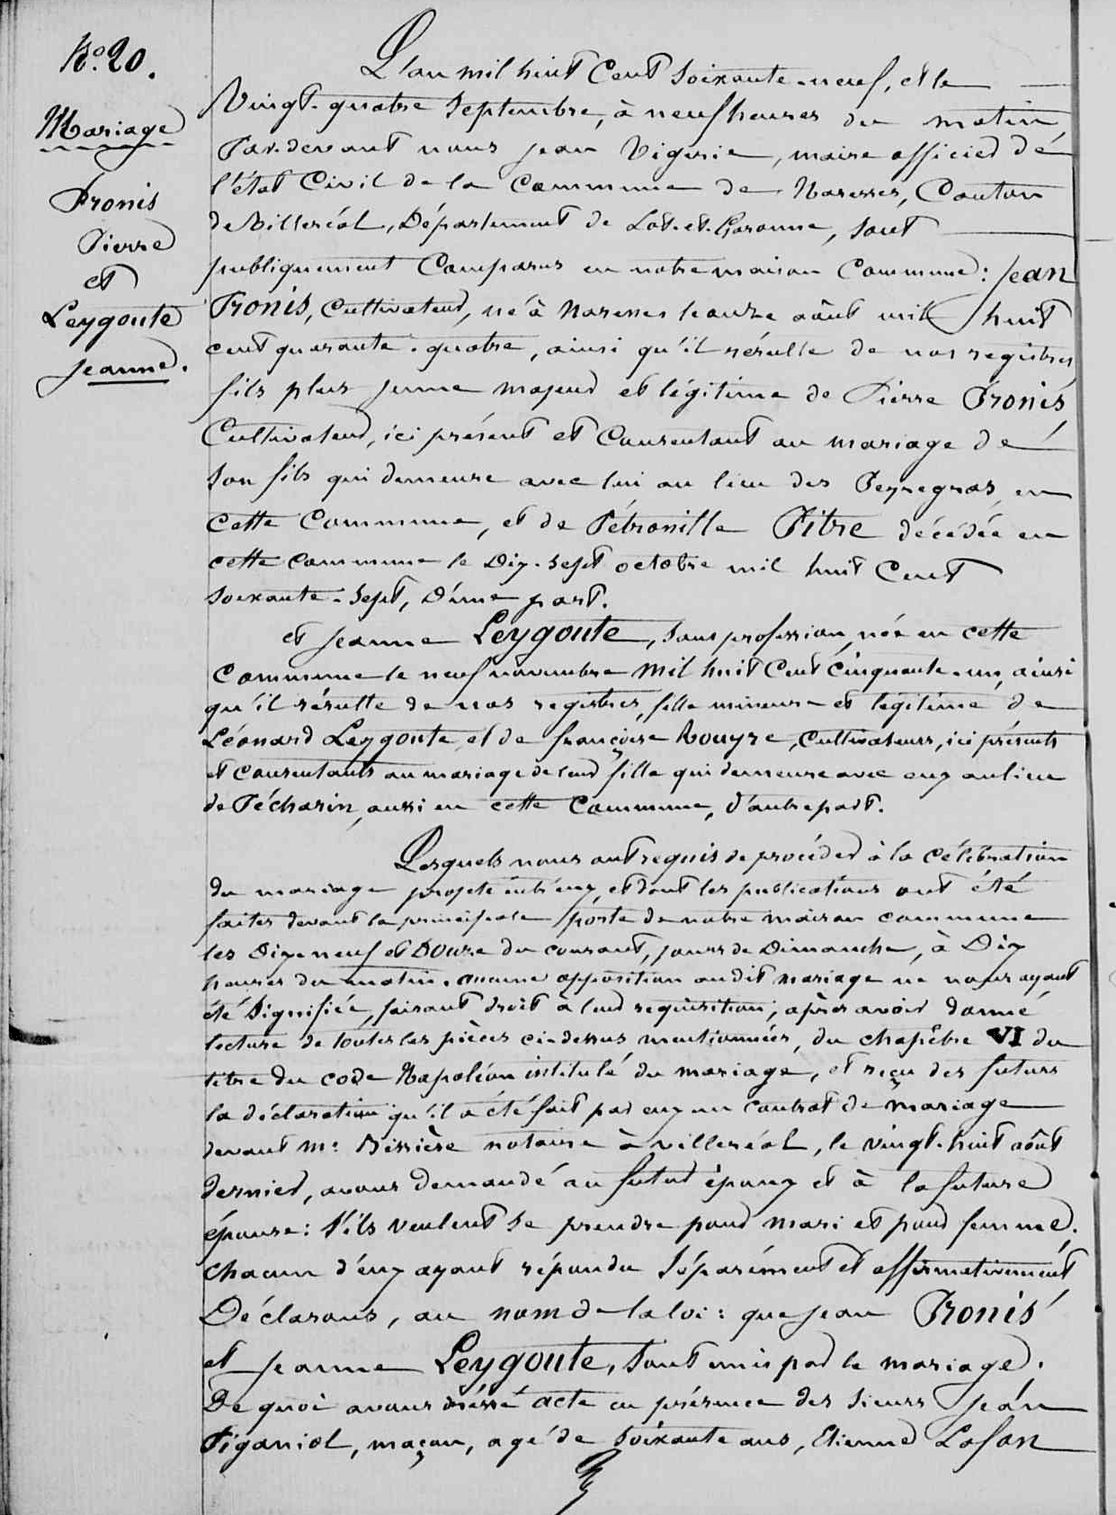 No. 20.
Mariage
Pronis
Pierre
et
Leygoute
Jeanne.
L'an mil huit cent soixante-neuf, et le
vingt-quatre septembre, à neuf heures du matin,
Par-devant nous Jean Vigerie, maire officier de
l'état Civil de la Commune de Naresses, Canton
de Villeréal, Département de Lot-et-Garonne, sont
publiquement comparus en notre maison commune: Jean
Pronis, Cultivateur, né à Naresses le onze août mil huit
cent quarante-quatre, ainsi qu'il résulte de nos registres,
fils plus jeune majeur et légitime de Pierre Pronis,
Cultivateur, ici présent et consentant au mariage de
son fils qui demeure avec lui au lieu des Peyregros, en
cette Commune, et de Pétronille Pitre décédée en
cette commune le Dix-sept octobre mil huit Cent
soixante-sept, D'une part.
et Jeanne Leygoute, sans profession, née en cette
commune le neuf novembre mil huit Cent cinquante-un, ainsi
qu'il résulte de nos registres, fille mineure et légitime de
Léonard Leygoute et de françoise Rouyre, Cultivateurs, ici présents
et consentants au mariage de leur fille qui demeure avec eux au lieu
de Pécharin, aussi en cette Commune, d'autre part.
Lesquels nous ont requis de procéder à la célébration
du mariage projeté entr'eux, et dont les publications ont été
faites devant la principale porte de notre maison commune
les Dix neuf et Douze du courant, jours de Dimanche, à Dix
heures du matin. aucune opposition audit mariage ne nous ayant
été signifiée, faisant droit à leur réquisition, après avoir donné
lecture de toutes les pièces ci-dessus mentionnées, du chapître VI du
titre du code Napoléon intitulé du mariage, et reçu des futurs
la déclaration qu'il a été fait par eux un contrat de mariage
devant Me. Bissière notaire à villeréal, le vingt-huit août
dernier, avons demandé au futur époux et à la future
épouse: s'ils veulent se prendre pour mari et pour femme.
chacun d'eux ayant répondu séparément et affirmativement,
Déclarons, au nom de la loi: que Jean Pronis
et Jeanne Leygoute, sont unis par le mariage.
De quoi avons dréssé acte en présence des sieurs Jean
Piganiol, maçon, agé de soixante ans, Etienne Lafon